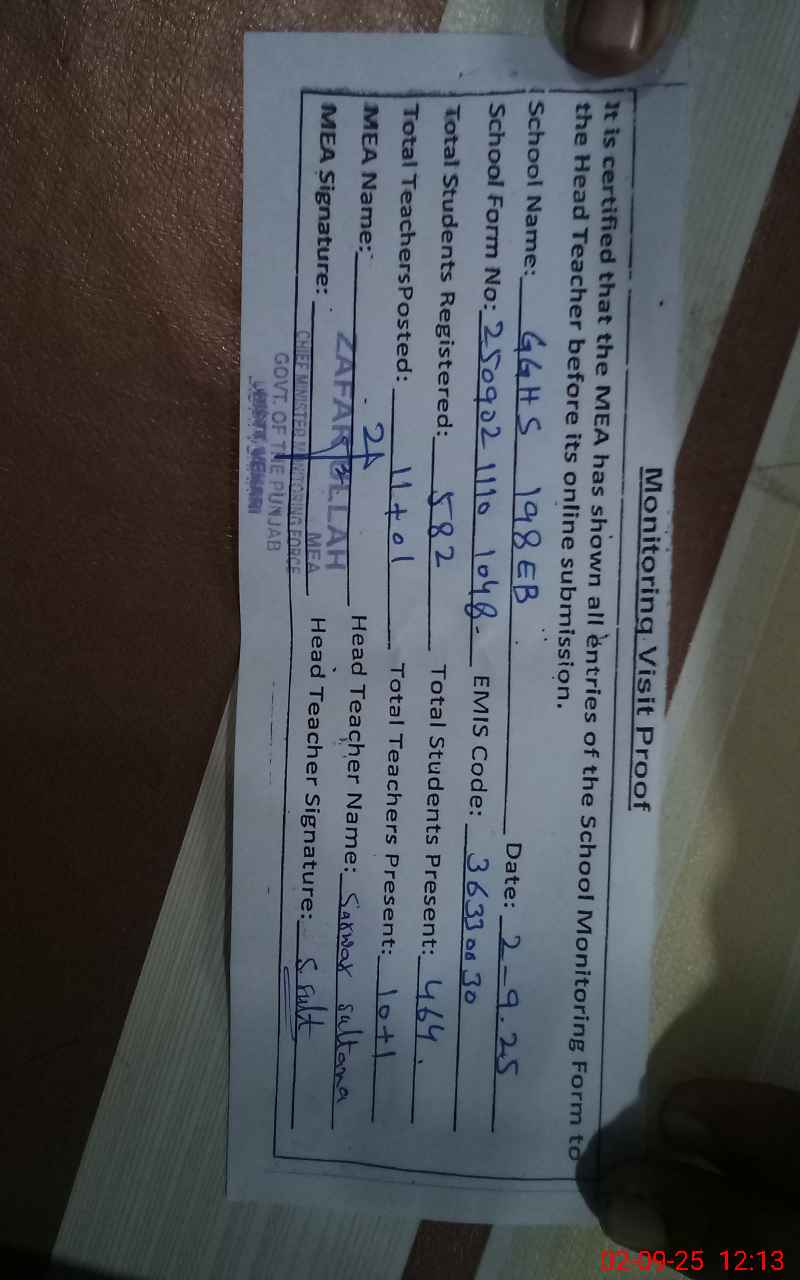 Monitoring Visit Proof
It is certified that the MEA has shown all entries of the School Monitoring Form to
the Head Teacher before its online submission.
School Name: GGHS 198 EB Date: 2-9.25
School Form No: 250902 1110 1048. EMIS Code: 36330030
Total Students Registered: 582 Total Students Present: 464.
Total TeachersPosted: 11+01 Total Teachers Present: 10+1
MEA Name: ZAFAR ULLAH Head Teacher Name: Sarwar Sultana
MEA Signature: MEA Head Teacher Signature: S Sult
CHIEF MINISTER MONITORING FORCE
GOVT. OF THE PUNJAB
VEHARI
02-09-25 12:13